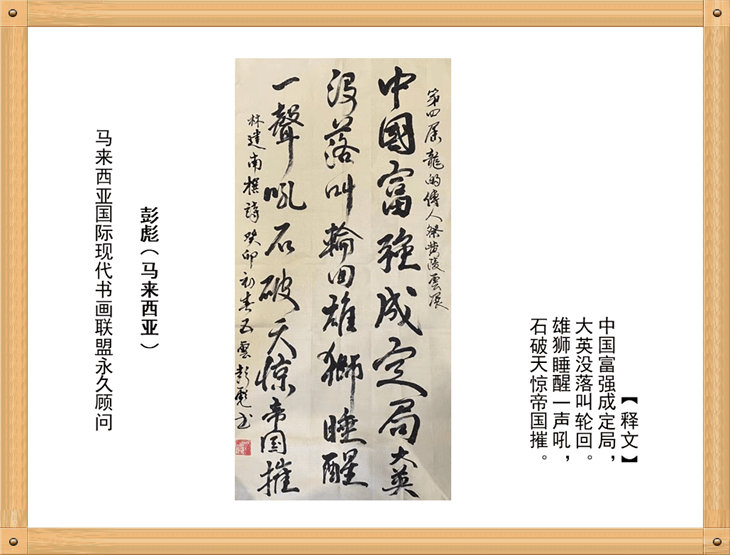 【释文】
中国富强成定局，
大英没落叫轮回。
雄狮睡醒一声吼，
石破天惊帝国摧。
第四届龍的傳人祭黄陵雲展
中國富強成定局大英
没落叫輪回雄獅睡醒
一聲吼石破天惊帝国摧
林建南撰詩癸卯初春五雲彭彪书
彭彪（马来西亚）
马来西亚国际现代书画联盟永久顾问